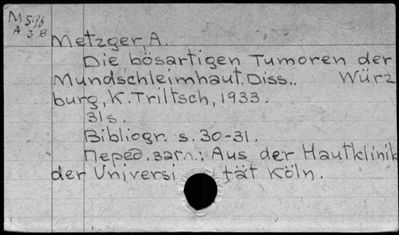 M596
A 38
Metzger, A.
Die bösartigen Tumoren der
Mundschleimhaut. Diss.. Würz
burg, K. Triltsch, 1933.
31 s.
Bibliogr. s. 30-31.
Перед. загл.: Aus der Hautklinik
der Universi tät Köln.